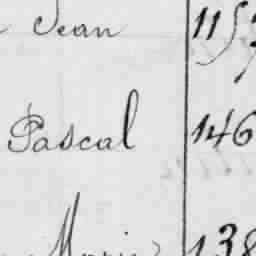 Jean 115
Pascal 146
Marie 138